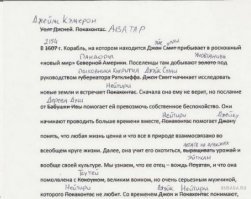 Джеймс Кэмерон
АВАТАР
Уолт Дисней. Покахонтас.
2154
В 1607 г. Корабль, на котором находится Джон Смит прибывает в роскошный
Пандора
«новый мир» Северной Америки. Поселенцы там добывают золото под
полковника Куоритча Джейк Салли
руководством губернатора Рэтклиффа. Джон Смит начинает исследовать
Нейтири
новые земли и встречает Покахонтас. Сначала она ему не верит, но послание
Дерева Душ
от Бабушки Ивы помогает ей превозмочь собственное беспокойство. Они
Нейтири Джейку
начинают проводить больше времени вместе, Покахонтас помогает Джону
понять, что любая жизнь ценна и что все в природе взаимосвязано во
всеобщем круге жизни. Далее, она учит его охотиться, выращивать урожай и
Эйтукан
вообще своей культуре. Мы узнаем, что ее отец – вождь Поухатан, и что она
Тсу'тей
помолвлена с Кокоумом, великим воином, но очень серьезным мужчиной,
Нейтири Джейк Нейтири
которого Покахонтас не любит. Со временем Джон и Покахонтас понимают,